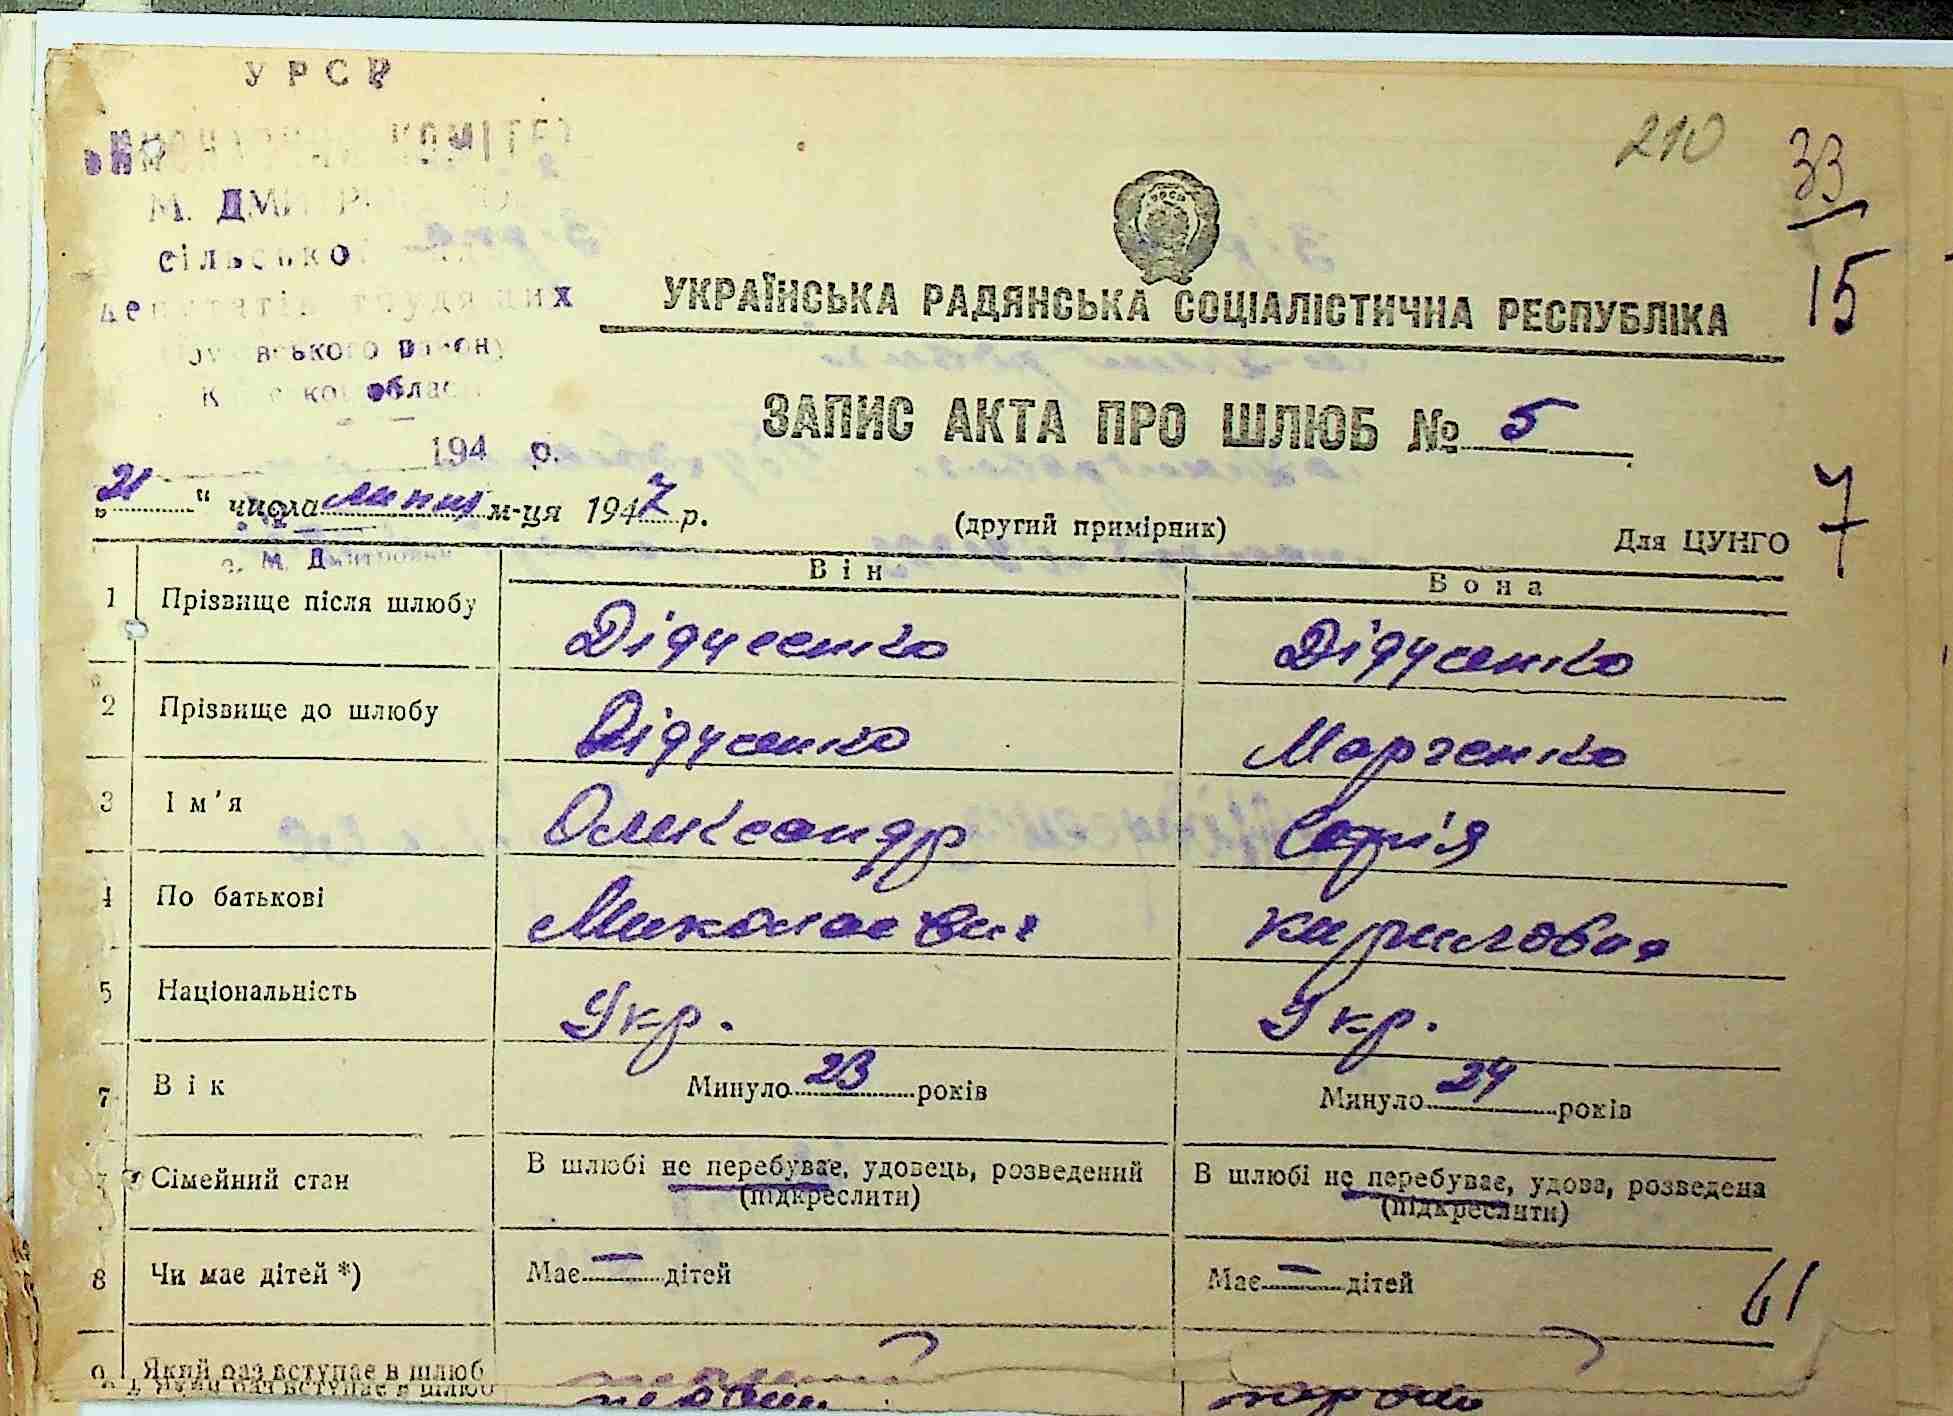 УРСР
ВИКОНАВЧИЙ КОМІТЕТ
М. ДМИТРІ
сільської
депутатів трудящих
району
області
194 р.
210
33
15
УКРАЇНСЬКА РАДЯНСЬКА СОЦІАЛІСТИЧНА РЕСПУБЛІКА
ЗАПИС АКТА ПРО ШЛЮБ № 5
„21“ числа липня м-ця 1947 р.
(другий примірник)
Для ЦУНГО
7
с. М. Дмитровка
Він Вона
1 Прізвище після шлюбу Дідусенко Дідусенко
2 Прізвище до шлюбу Дідусенко Марченко
3 Ім'я Олександр Софія
4 По батькові Миколаєвич Кириловна
5 Національність Укр. Укр.
7 Вік Минуло 23 років Минуло 24 років
Сімейний стан В шлюбі не перебуває, удовець, розведений (підкреслити) В шлюбі не перебуває, удова, розведена (підкреслити)
8 Чи має дітей *) Має — дітей Має — дітей
61
9 Який раз вступає в шлюб
Який раз вступає в шлюб